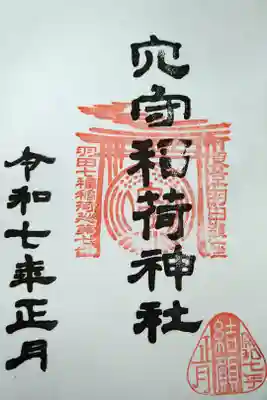 穴守稲荷神社
東京羽田鎮座
羽田七福稲荷めぐり
令和七年正月
令和七年
結願
正月